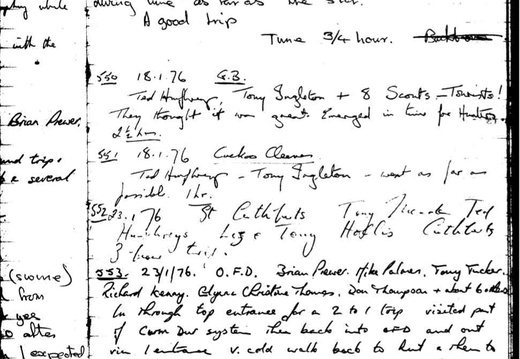 during time as far as the
A good trip
Time 3/4 hour.
with the
550 18.1.76 G.B.
Ted Humphreys, Tony Ingleton + 8 Scouts - Tourists!
Brian Prewer,
They thought it was great. Emerged in time for
2½ hrs.
and trip.
551 18.1.76 Cuckoo Cleeves
several
Ted Humphreys - Tony Ingleton - went as far as
possible 1hr.
552 23.1.76 St Cuthberts Tony Ted
Humphreys Liz & Tony Hollis Cuthberts
3 hour trip.
(swome)
553. 23/1/76. O.F.D. Brian Prewer, Mike Palmer, Tony Tucker.
from
Richard Kenny. Glynn Christine Thomas, Don Thompson + about 6 others
In through top entrance for a 2 to 1 trip visited part
after
of Cwm Dwr system then back into OFD and out
I expected
via 1 entrance v. cold walk back to hut & then to